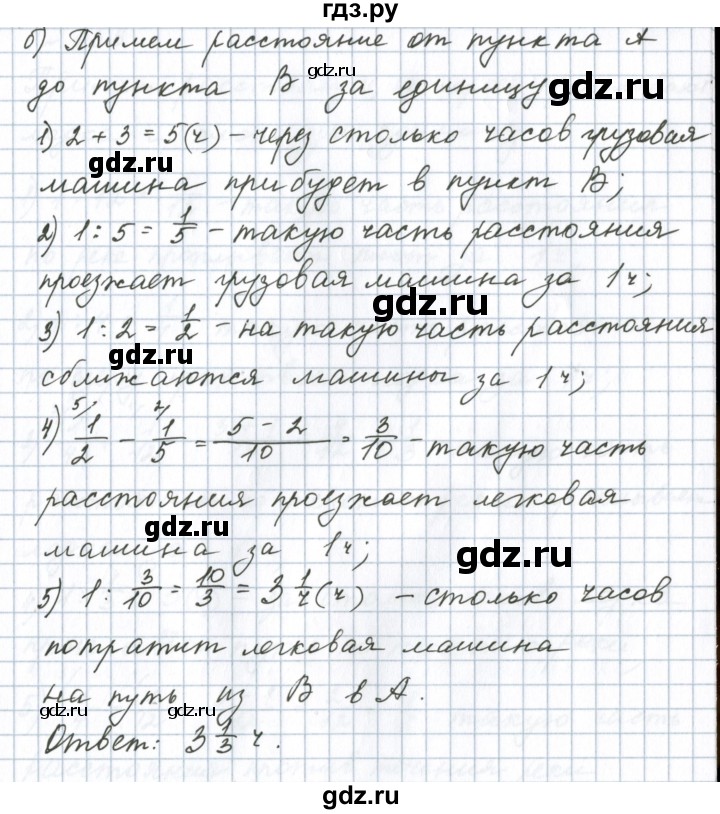 гдз.ру
б) Примем расстояние от пункта А
gdz.ru
до пункта В за единицу
gdz.ru
1) 2 + 3 = 5 (ч) – через столько часов грузовая
gdz.ru
машина прибудет в пункт В;
2) 1 : 5 = 1/5 – такую часть расстояния
проезжает грузовая машина за 1 ч;
gdz.ru
3) 1 : 2 = 1/2 – на такую часть расстояния
gdz.ru
сближаются машины за 1 ч;
4) 5/ 1/2 – 2/ 1/5 = (5 – 2)/10 = 3/10 – такую часть
расстояния проезжает легковая
gdz.ru
машина за 1 ч;
gdz.ru
5) 1 : 3/10 = 10/3 = 3 1/4 (ч) – столько часов
потратит легковая машина
на путь из В в А.
gdz.ru gdz.ru
Ответ: 3 1/3 ч.
gdz.ru